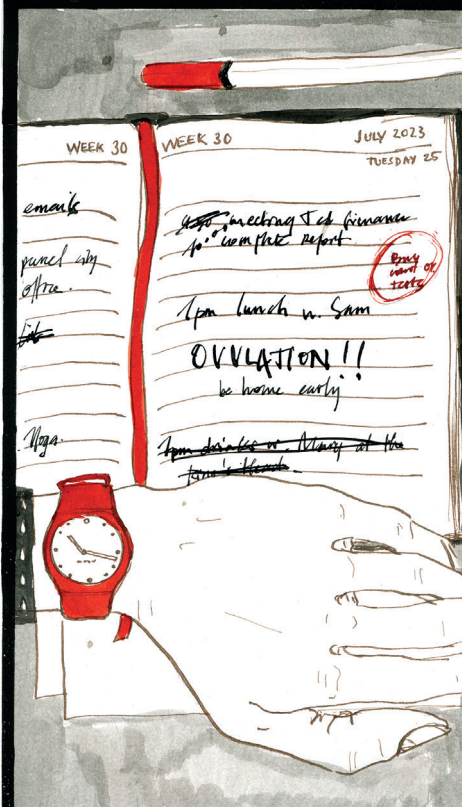 WEEK 30
emails
panel city
office.
Yoga.
WEEK 30
JULY 2023
TUESDAY 25
meeting finance
to complete report
Buy
or
tests
1pm lunch w. Sam
OVULATION!!
be home early
drinks w. Mary at the
Head.